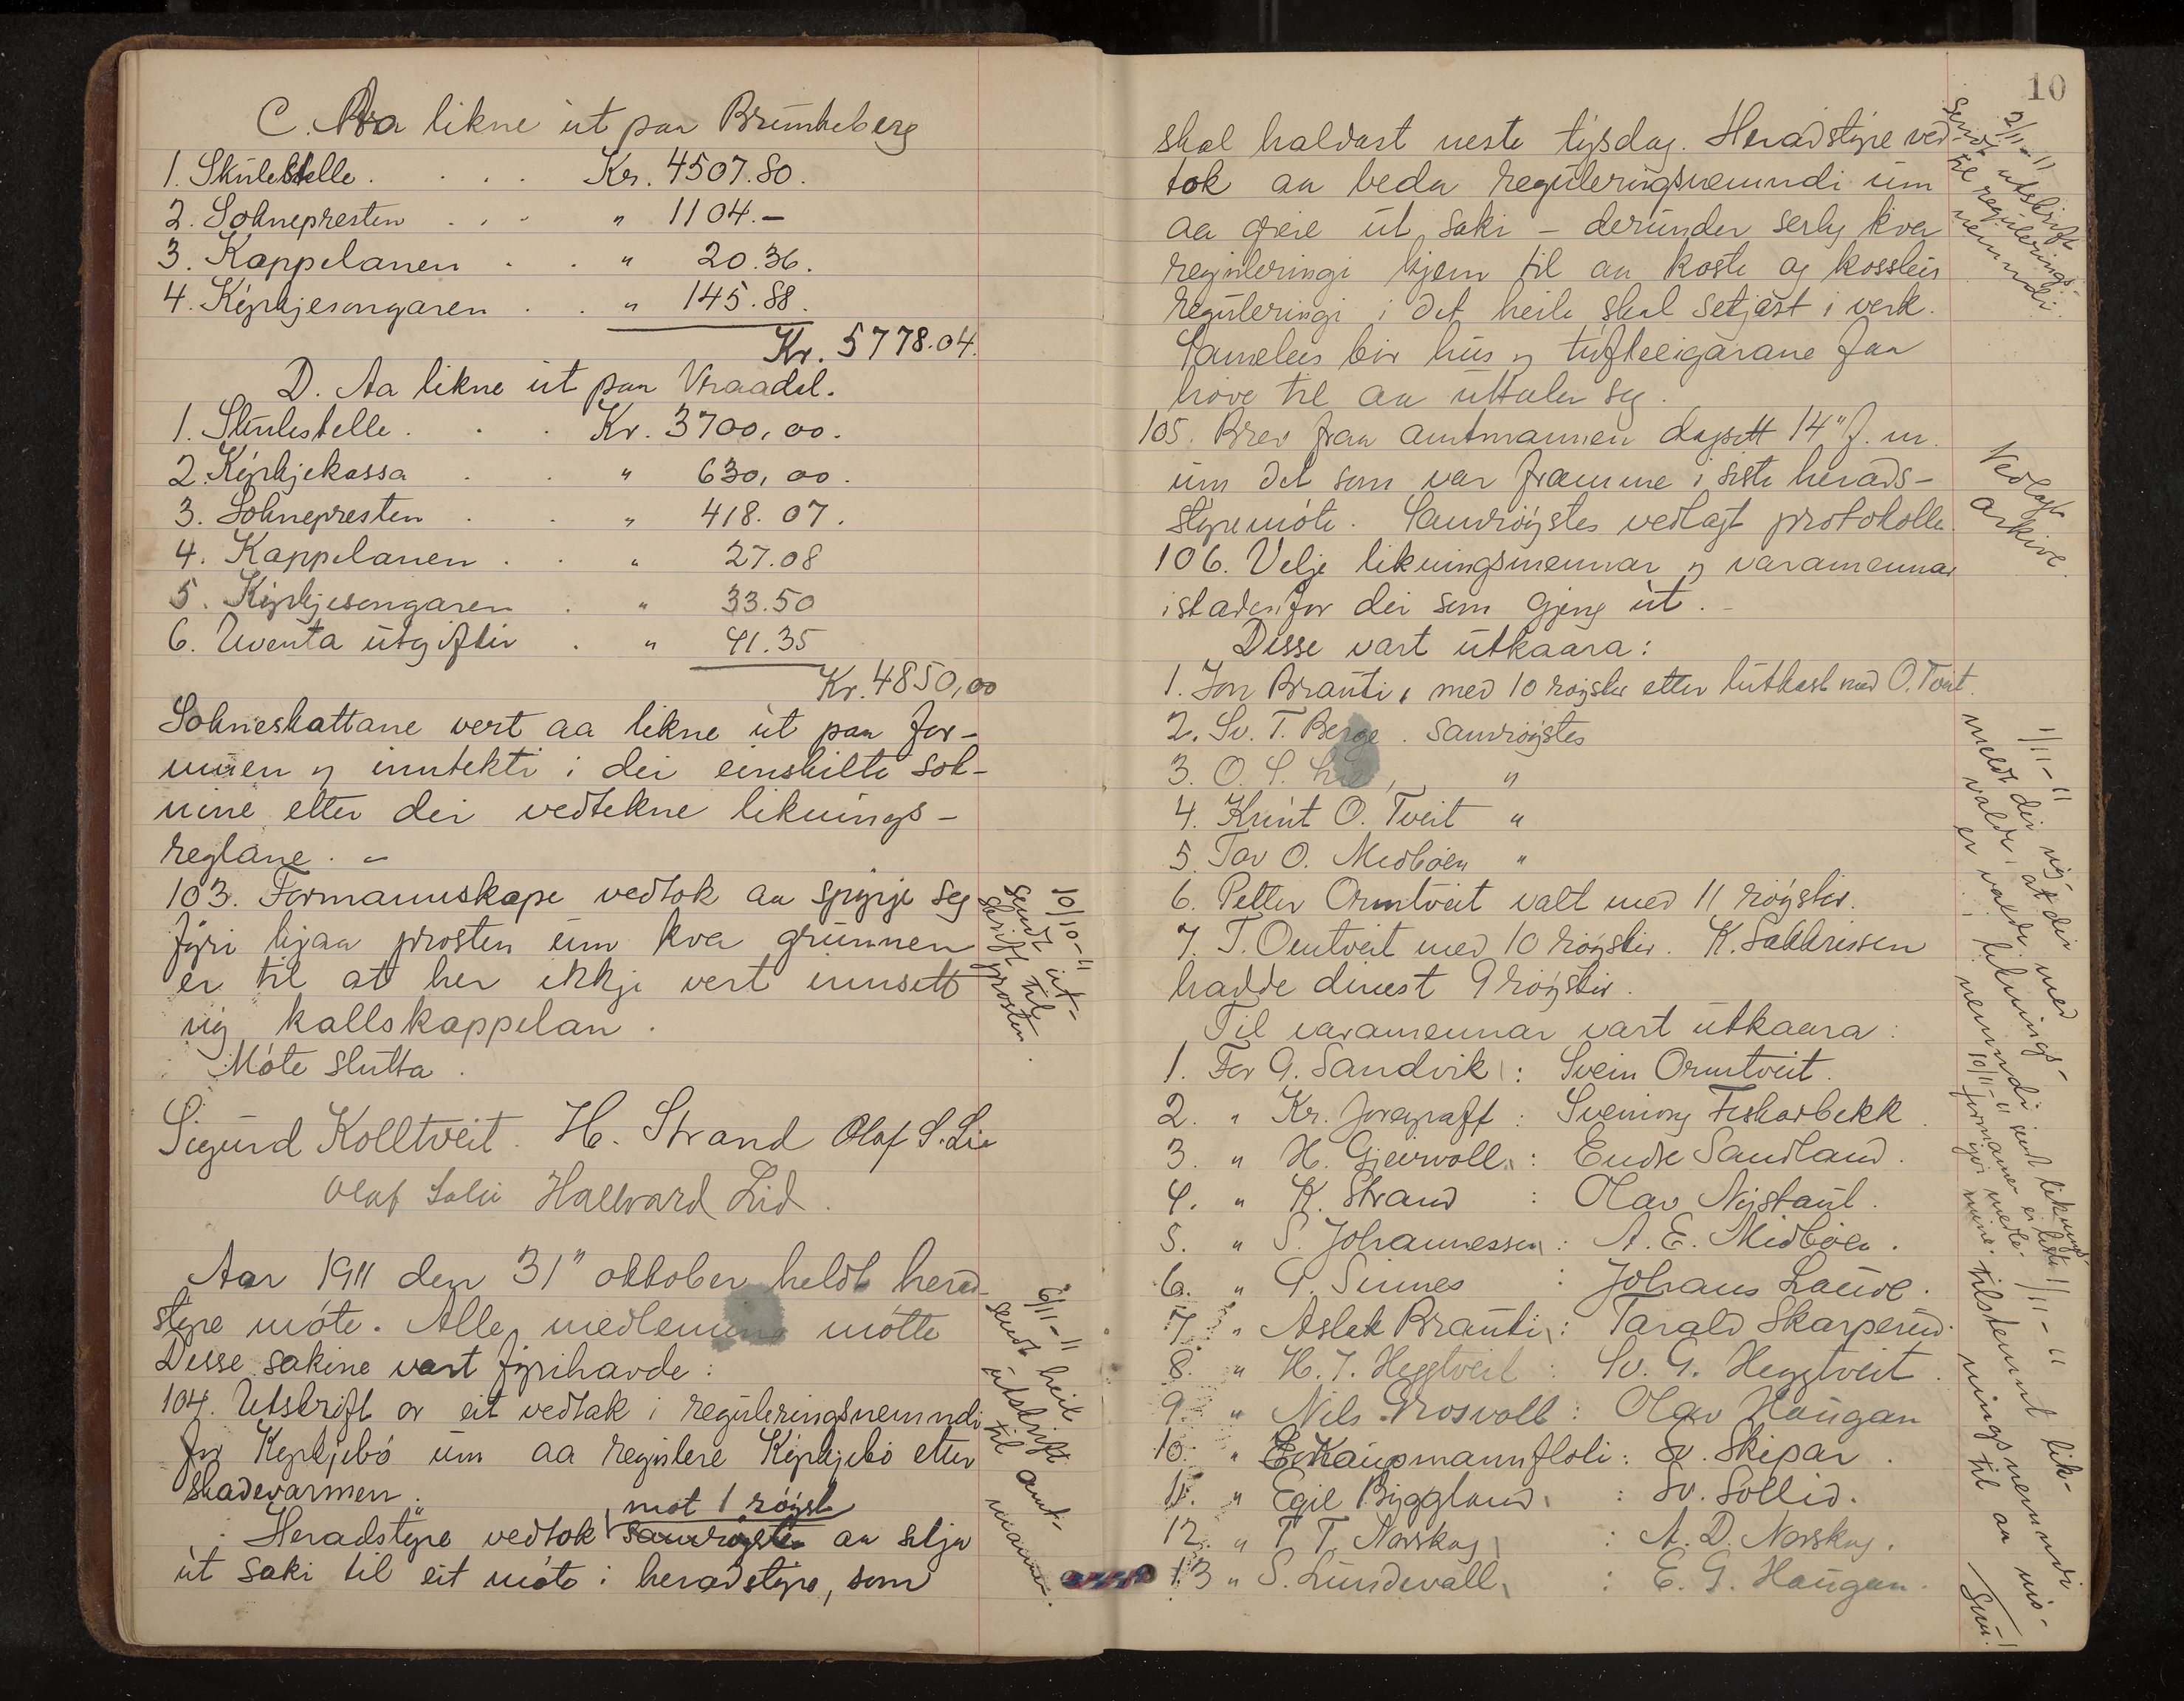 C. Aa likne ut paa Brunkeberg
1. Skulestelle . . . . Kr. 4507.80.
2. Soknepresten . . . " 1104.—
3. Kappelanen . . " 20.36.
4. Kyrkjesongaren . . " 145.88.
Kr. 5778.04.
D. Aa likne ut paa Vraadal.
1. Skulestelle . . . Kr. 3700,00.
2. Kyrkjekassa . . " 630,00.
3. Soknepresten . . " 418.07.
4. Kappelanen . . " 27.08
5. Kyrkjesongaren . " 33.50
6. Uventa utgifter . " 41.35
Kr. 4850,00
Sokneskattane vert aa likne ut paa for-
muen og inntekti i dei einskilte sok-
nine etter dei vedtekne liknings-
reglane. —
103. Formannskape vedtok aa spyrje seg
fyri hjaa prosten um kva grunnen
er til at her ikkje vert innsett
ny kallskappelan.
Møte slutta.
10/10-11
Sendt ut-
skrift til
prosten.
Sigurd Kolltveit. H. Strand Olaf S. Lie
Olaf Halvard Lid.
Aar 1911 den 31" oktober heldt herad-
styre møte. Alle medlemine møtte
Disse sakine vart fyrihavde:
104. Utskrift av eit vedtak i reguleringsnemndi
for Kyrkjebø um aa regulere Kyrkjebø etter
skadevarmen.
mot 1 røyst
Heradstyre vedtok samrøystes aa setja
ut saki til eit møte i heradstyre, som
6/11-11
sendt heile
utskrift
til amt-
mannen.
10
skal haldast neste tysdag. Heradstyre ved-
tok aa beda reguleringsnemndi um
aa greie ut saki — derunder serleg kva
reguleringi kjem til aa koste og kossleis
reguleringi i det heile skal setjast i verk.
Sameleis bør hus og tufteeigarane faa
høve til aa uttale seg.
2/11-11
Sendt utskrift
til regulerings-
nemndi.
105. Brev fraa amtmannen dagsett 14" f. m.
um det som var framme i siste herads-
styremøte. Samrøystes vedlagt protokolle.
Vedlagt
arkive.
106. Velje likningsmennar og varamennar
istadenfor dei som gjeng ut. —
Disse vart utkaara:
1. Jon Brauti, med 10 røyster etter lutkast med O. Tveit.
2. Sv. T. Berge. samrøystes
3. O. S. Lie, "
4. Knut O. Tveit "
5. Tov O. Midbøen "
6. Petter Ormtveit valt med 11 røyster.
7. T. Omtveit med 10 røyster. K. Sakkrissen
hadde dinest 9 røyster.
Til varamennar vart utkaara:
1. For G. Sandvik : Svein Ormtveit.
2. " Kr. : Sveinung Fiskarbekk.
3. " H. Gjervoll : Endre Sandland.
4. " K. Strand : Olav Nystaul.
5. " S. Johannessen : A. E. Midbøen.
6. " G. Sinnes : Johans Laude.
7. " Aslak Brauti : Tarald Skarperud.
8. " H. T. Heggtveit : Sv. G. Heggtveit.
9. " Nils Grosvoll : Olav Haugan
10. " Kaupmannfloti : Sv. Skipar.
11. " Egil Byggland : Sv. Sollid.
12. " T. T. Norskog : A. D. Norskog.
13 " S. Lundevall : E. G. Haugan.
1/11-11
meldt dei nyvalde, at dei
er valde med
i likningsnemndi